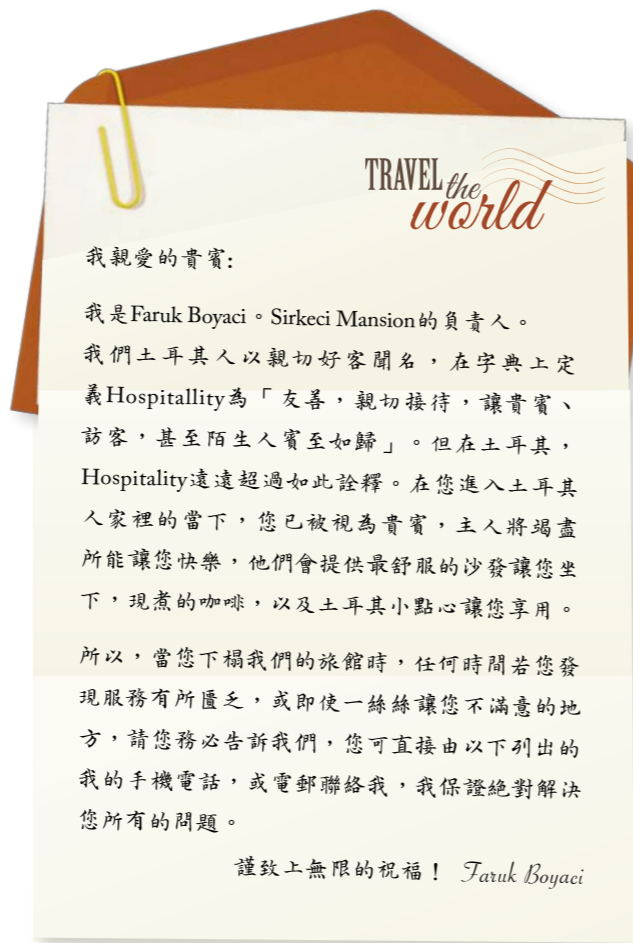 TRAVEL the
world
我親愛的貴賓:
我是Faruk Boyaci。Sirkeci Mansion的負責人。
我們土耳其人以親切好客聞名，在字典上定
義Hospitallity為「友善，親切接待，讓貴賓、
訪客，甚至陌生人賓至如歸」。但在土耳其，
Hospitality遠遠超過如此詮釋。在您進入土耳其
人家裡的當下，您已被視為貴賓，主人將竭盡
所能讓您快樂，他們會提供最舒服的沙發讓您坐
下，現煮的咖啡，以及土耳其小點心讓您享用。
所以，當您下榻我們的旅館時，任何時間若您發
現服務有所匱乏，或即使一絲絲讓您不滿意的地
方，請您務必告訴我們，您可直接由以下列出的
我的手機電話，或電郵聯絡我，我保證絕對解決
您所有的問題。
謹致上無限的祝福！ Faruk Boyaci